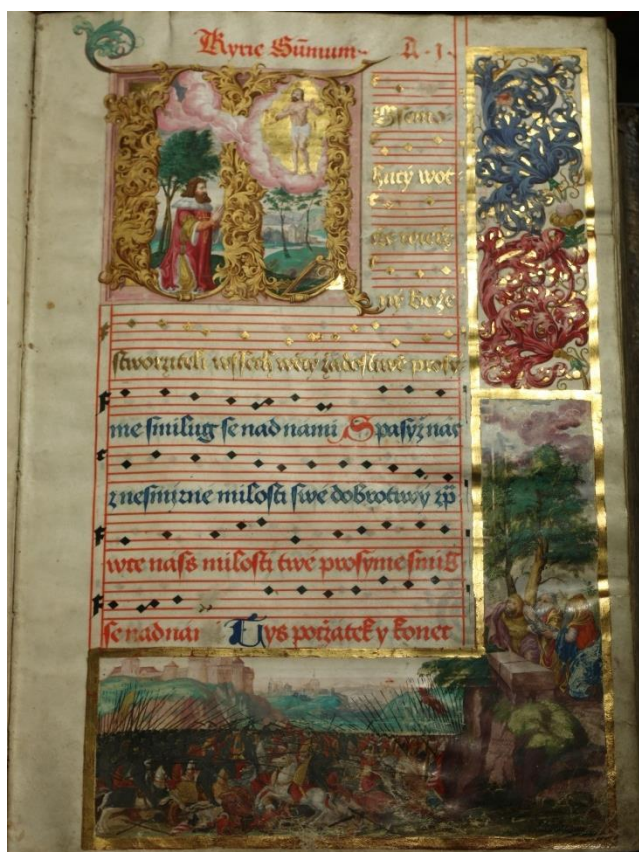 Kyrie Sūmum A·j·
Wssemo-
hutcý wot-
cže wieč-
ný Bože
stworziteli wssech wěcý žádostiwě prosy-
me smilug se nad nami Spasyž nás
z nesmirne milosti swé dobrotiwý
wče náss milosti twé prosyme smil
se nad nami Tys počžatek y konec